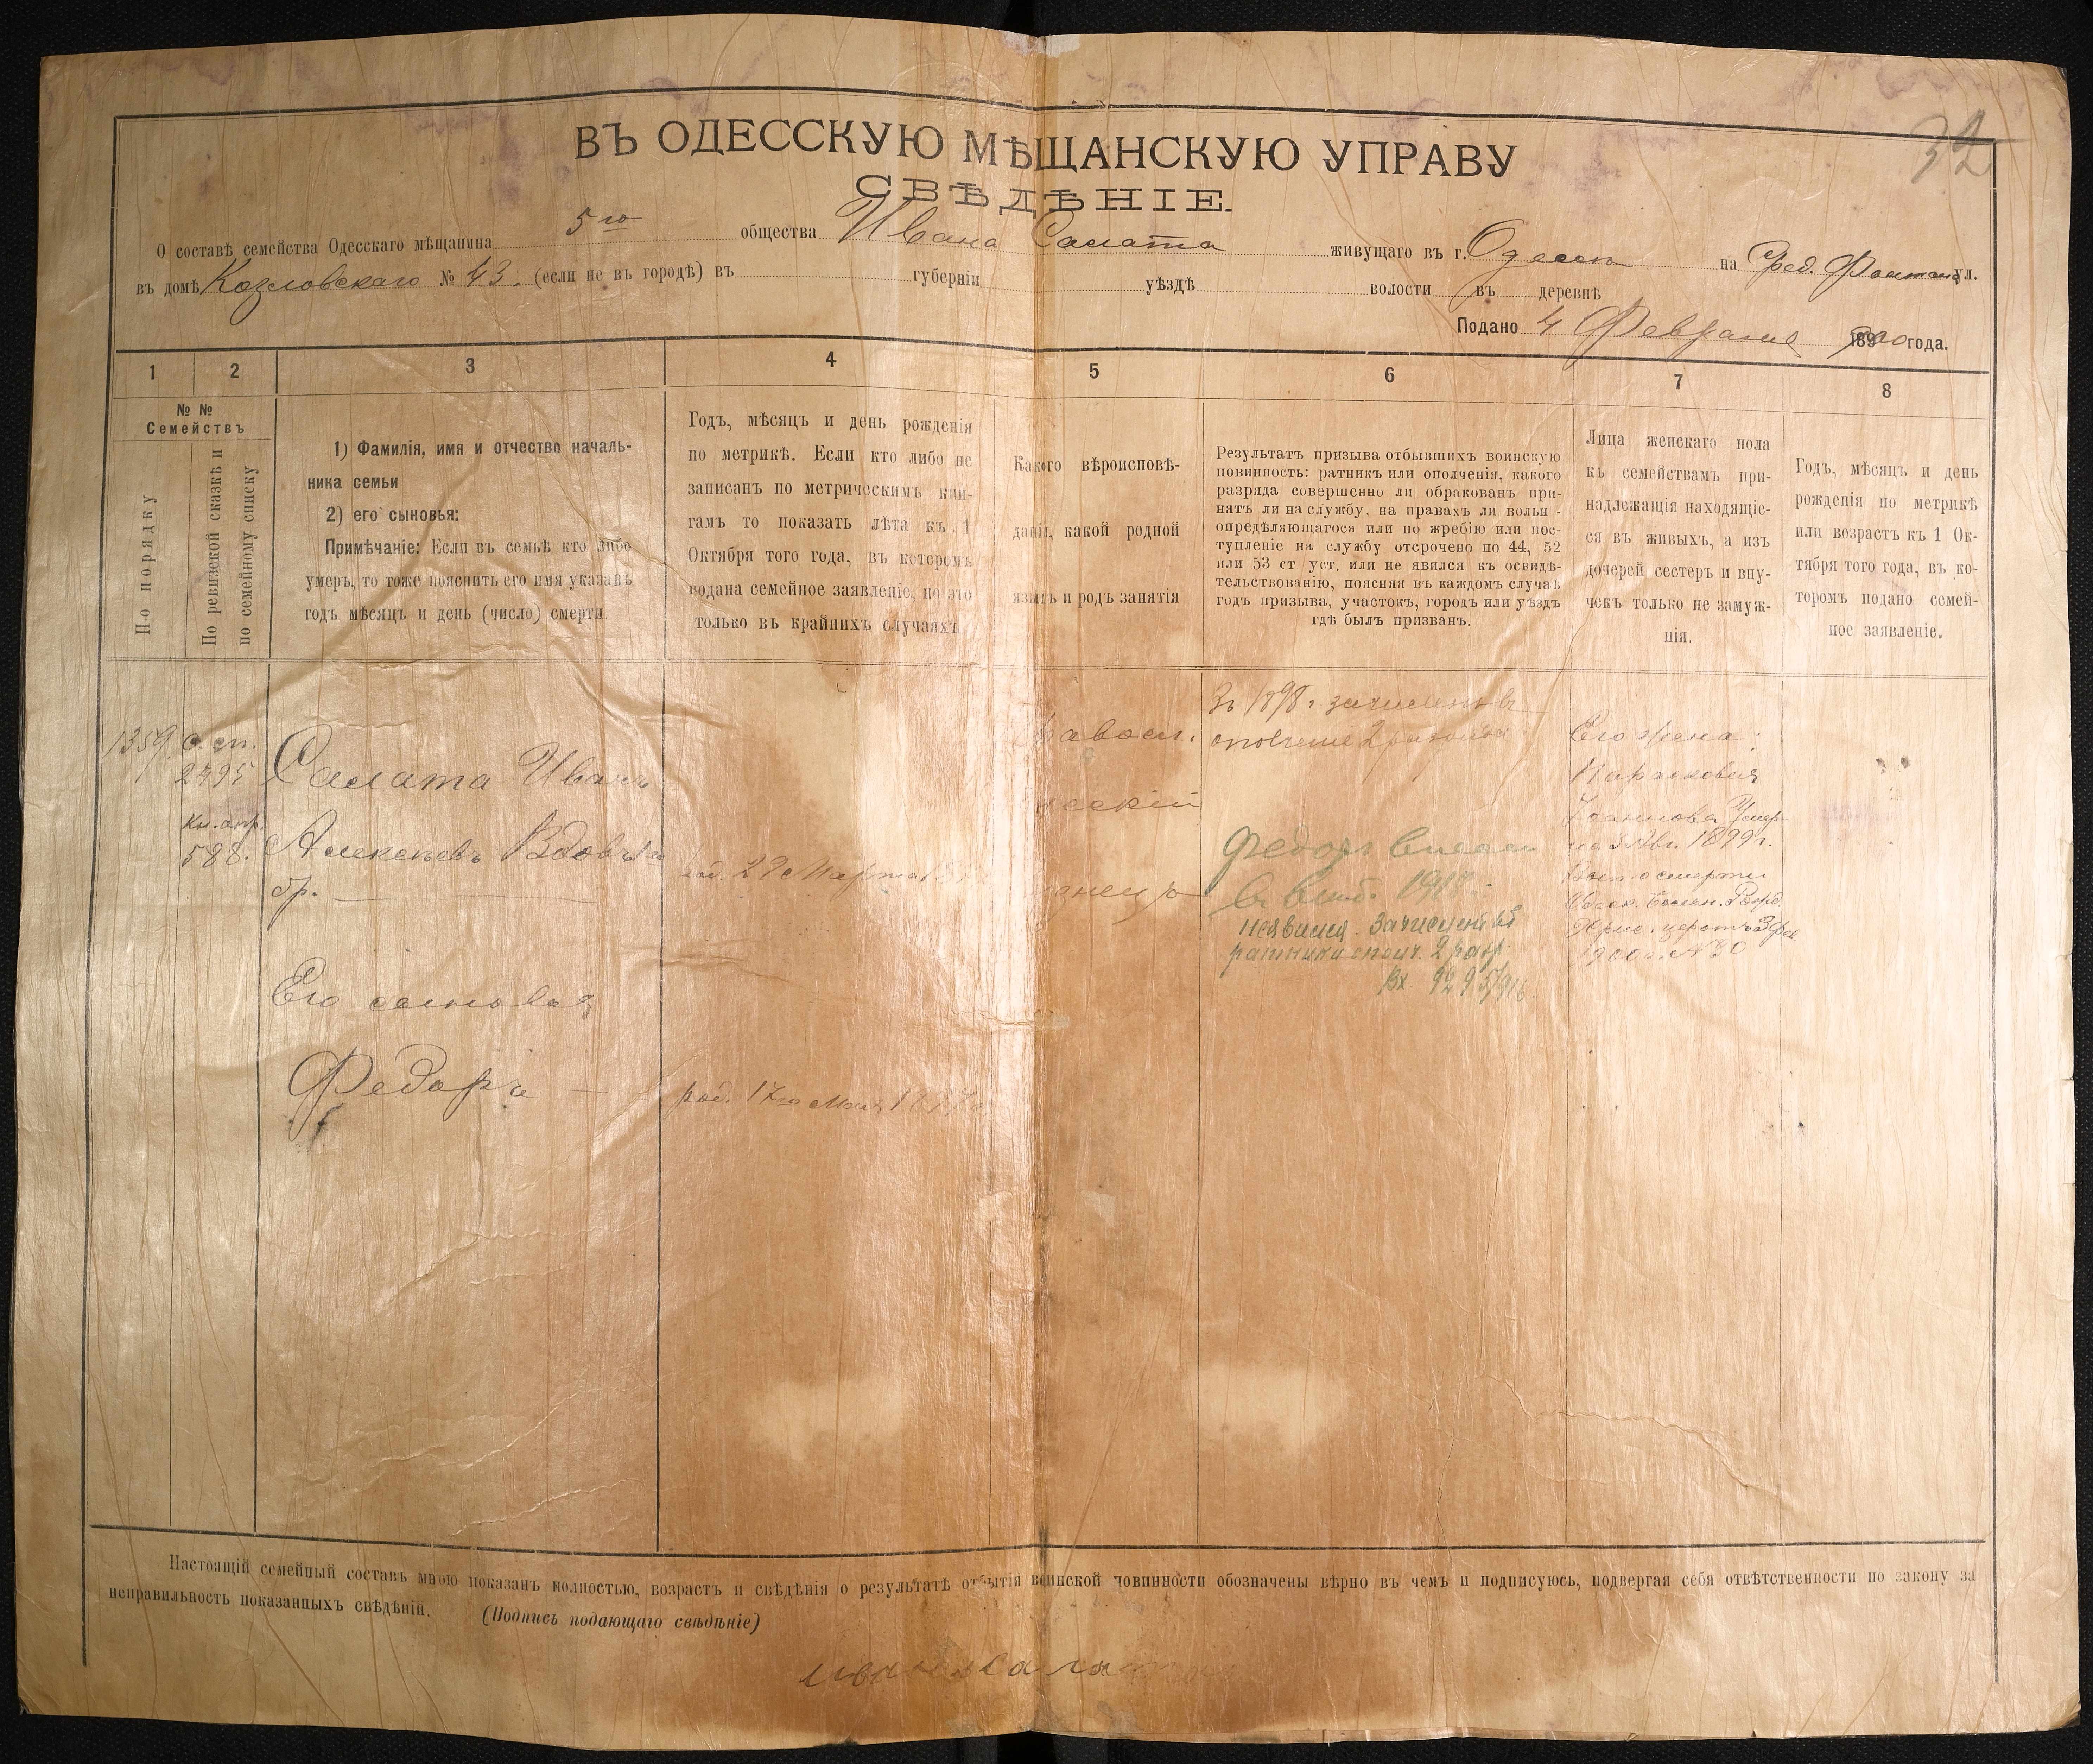 32
ВЪ ОДЕССКУЮ МѢЩАНСКУЮ УПРАВУ
СВѢДѢНІЕ.
О составѣ семейства Одесскаго мѣщанина 5го общества Ивана Салата живущаго въ г. Одессѣ на Сред. Фонтанѣ ул.
въ домѣ Козловскаго № 43. (если не въ городѣ) въ губерніи уѣздѣ волости въ деревнѣ
Подано 4 Февраля 1900 года.
1 2 3 4 5 6 7 8
№ №
Семействъ
По порядку
По ревизской сказкѣ и
по семейному списку
1) Фамилія, имя и отчество началь-
ника семьи
2) его сыновья:
Примѣчаніе: Если въ семьѣ кто либо
умеръ, то тоже пояснить его имя указавъ
годъ мѣсяцъ и день (число) смерти.
Годъ, мѣсяцъ и день рожденія
по метрикѣ. Если кто либо не
записанъ по метрическимъ кни-
гамъ то показать лѣта къ 1
Октября того года, въ которомъ
подана семейное заявленіе, но это
только въ крайнихъ случаяхъ
Какого вѣроисповѣ-
данія, какой родной
языкъ и родъ занятія
Результатъ призыва отбывшихъ воинскую
повинность: ратникъ или ополченія, какого
разряда совершенно ли обракованъ при-
нятъ ли на службу, на правахъ ли вольн-
опредѣляющагося или по жребію или пос-
тупленіе на службу отсрочено по 44, 52
или 53 ст уст. или не явился къ освидѣ-
тельствованію, поясняя въ каждомъ случаѣ
годъ призыва, участокъ, городъ или уѣздъ
гдѣ былъ призванъ.
Лица женскаго пола
къ семействамъ при-
надлежащія находящіе-
ся въ живыхъ, а изъ
дочерей сестеръ и вну-
чекъ только не замуж-
нія.
Годъ, мѣсяцъ и день
рожденія по метрикѣ
или возрастъ къ 1 Ок-
тября того года, въ ко-
торомъ подано семей-
ное заявленіе.
1359 с. сп.
2495
Кн. апр.
588.
Салата Иванъ
Алексѣевъ Вдовъ
бр.
Его сыновья
Федоръ —
род. 29 Марта
род. 17го Мая
авосл.
сскій
Въ 1898 г. зачисленъ въ
ополченіе 2 разряда
Федоръ
неявился. Зачисленъ въ
ратники ополч. 2 разр.
Вх. 9295/916
Его жена:
Параскевия
Іоаннова Умер-
ла 3 Авг. 1899 г.
смерти
3 фев
1900 г. № 30
Настоящій семейный составъ мною показанъ полностью, возрастъ и свѣдѣнія о результатѣ отбытія воинской повинности обозначены вѣрно въ чемъ и подписуюсь, подвергая себя отвѣтственности по закону за
неправильность показанныхъ свѣдѣній. (Подпись подающаго свѣдѣніе)